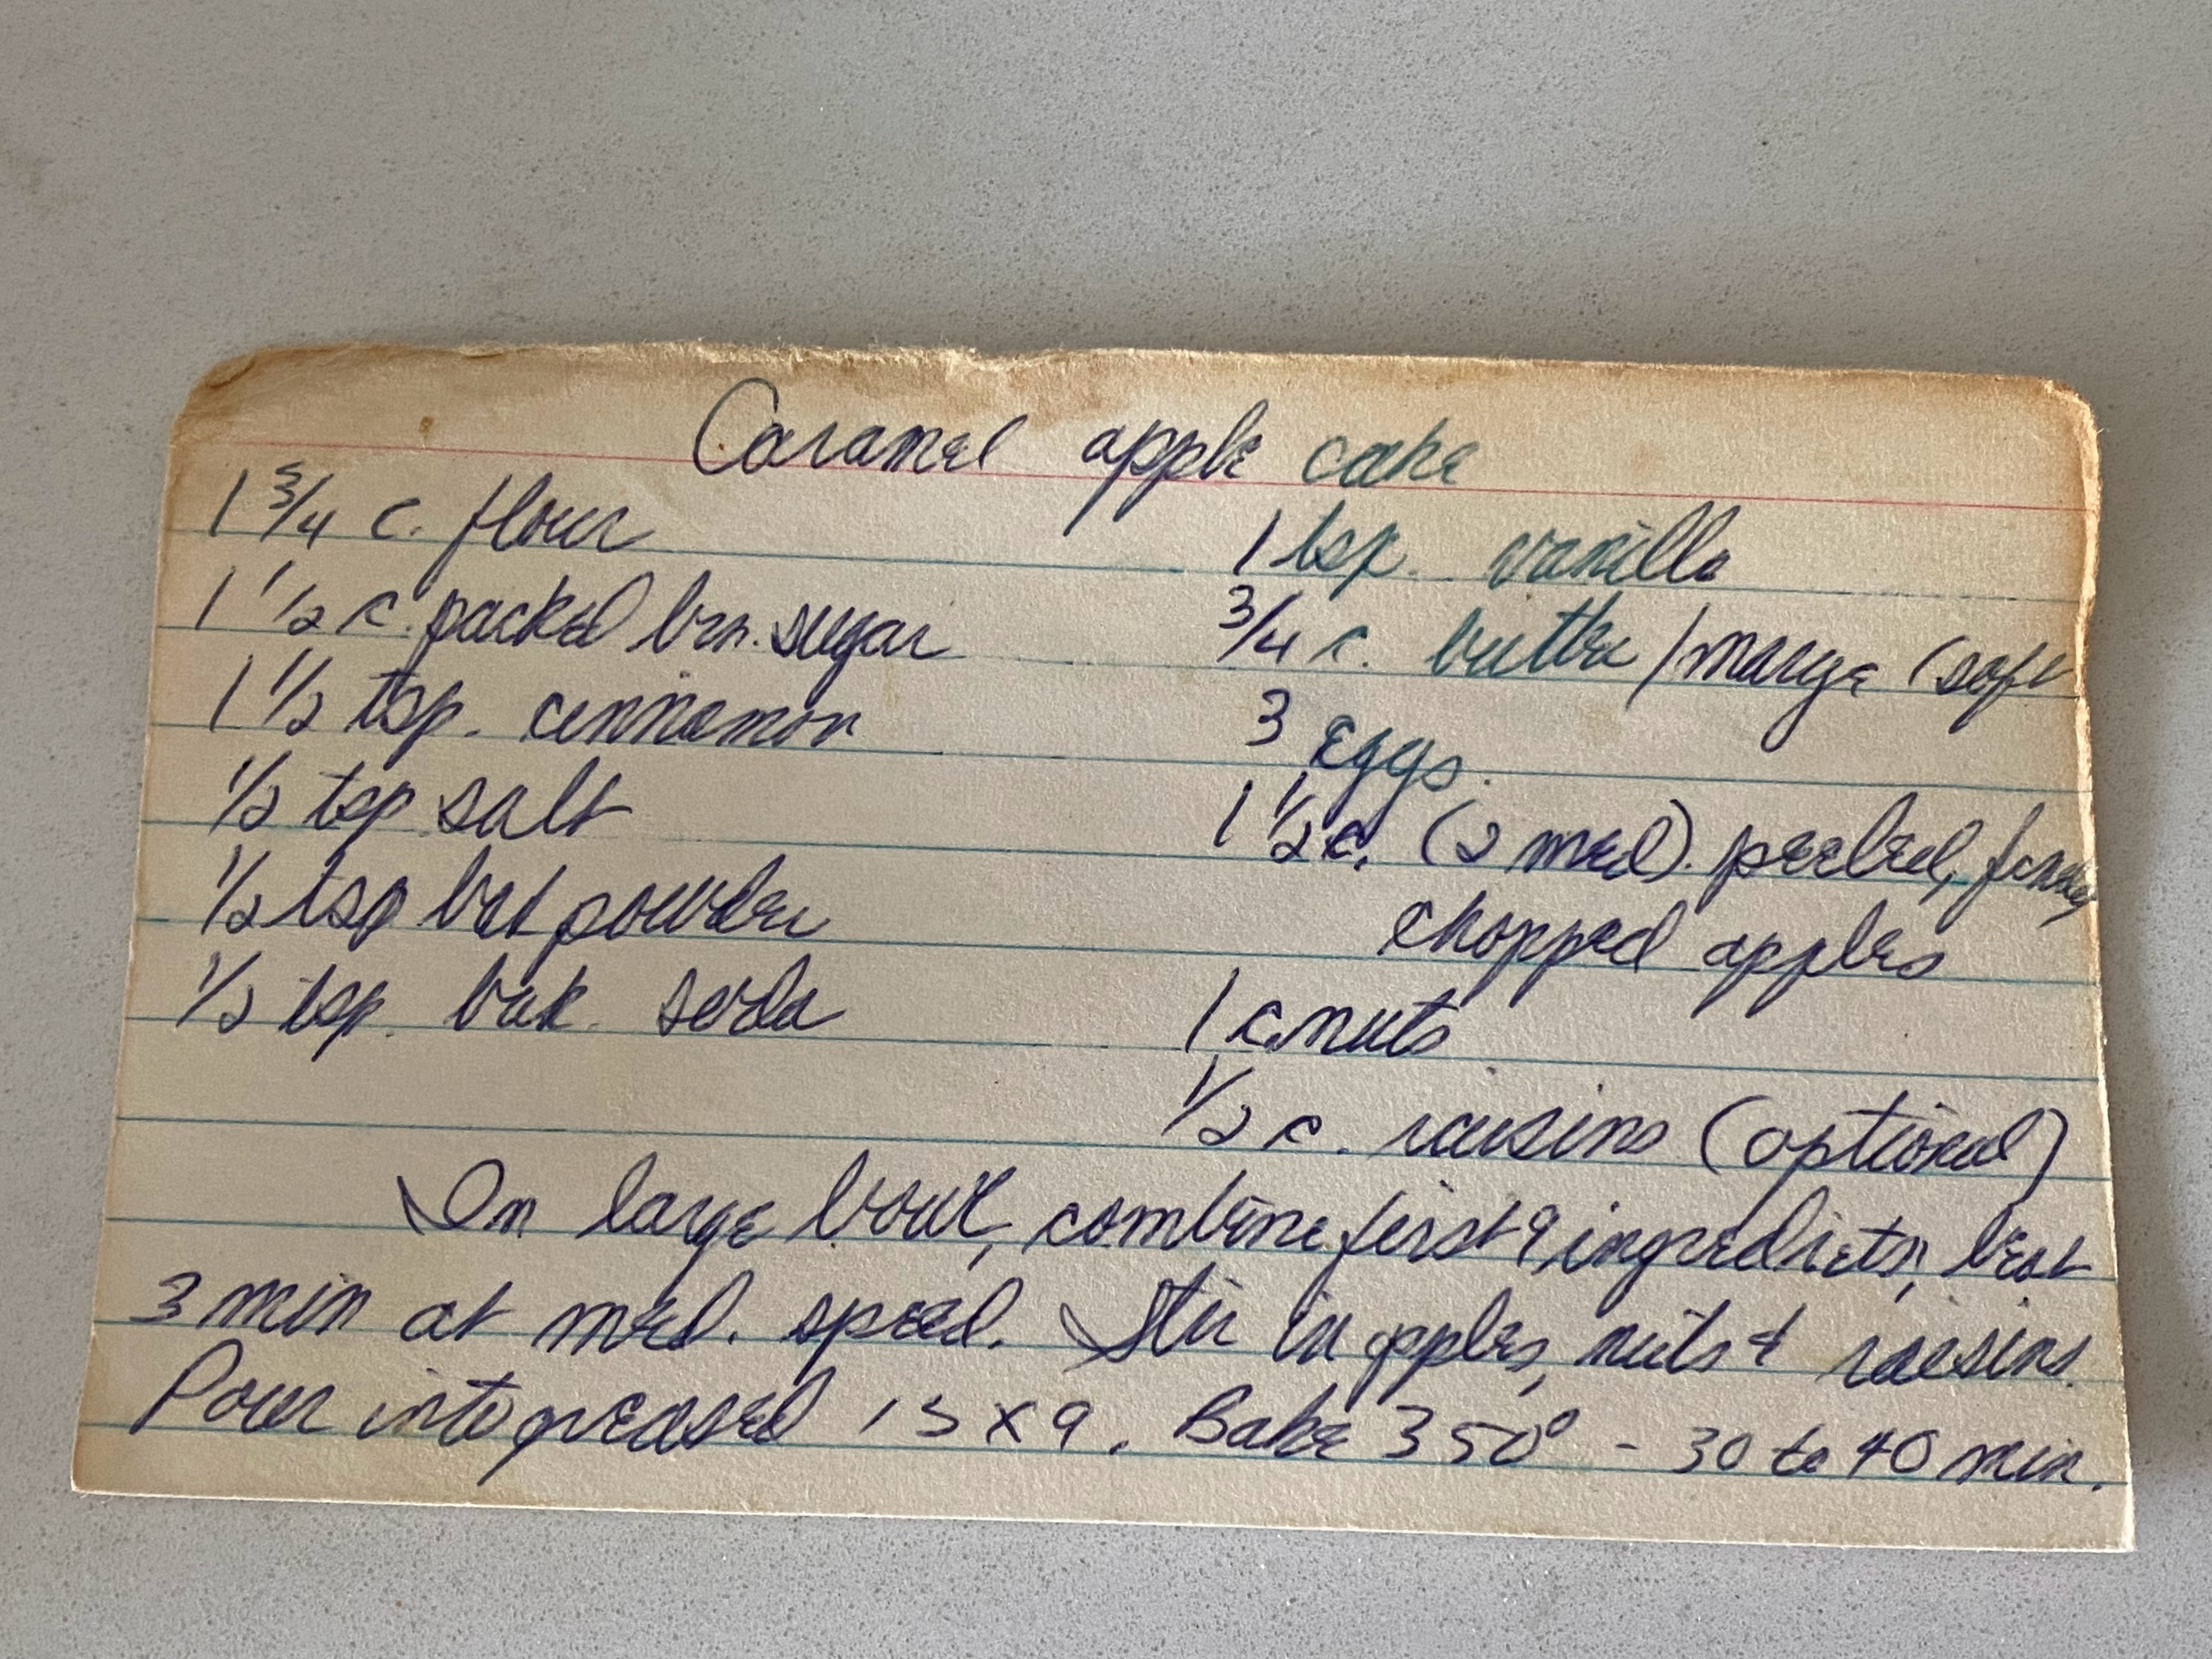 Caramel apple cake
1 3/4 c. flour
1 1/2 c. packed brn. sugar
1 1/2 tsp. cinnamon
1/2 tsp salt
1/2 tsp bak powder
1/2 tsp. bak. soda
1 tsp. vanilla
3/4 c. butter/marge (soft
3 eggs.
1 1/2 c. (2 med). peeled, finely
chopped apples
1 c. nuts
1/2 c. raisins (optional)
In large bowl, combine first 9 ingredients; beat
3 min at med. speed. Stir in apples, nuts & raisins.
Pour into greased 13 x 9. Bake 350° - 30 to 40 min.